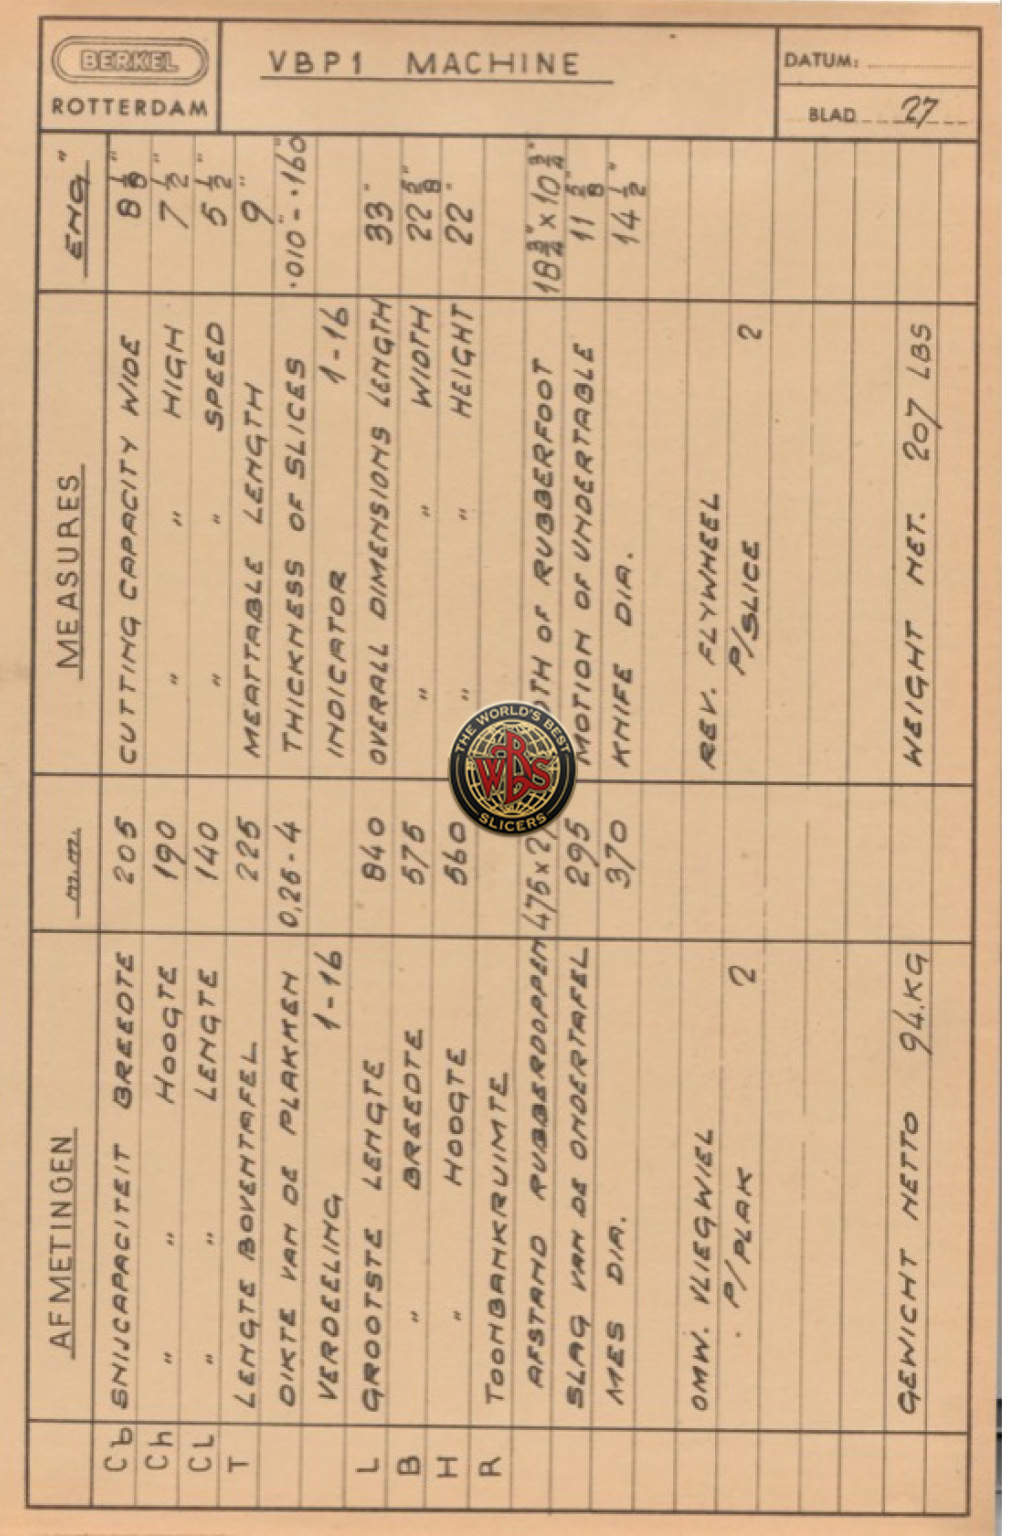 BERKEL
ROTTERDAM
VBP1 MACHINE
DATUM:
BLAD 27
AFMETINGEN m.m. MEASURES ENG"
Cb SNIJCAPACITEIT BREEDTE 205 CUTTING CAPACITY WIDE 8 1/8"
Ch " " HOOGTE 190 " " HIGH 7 1/2"
CL " " LENGTE 140 " " SPEED 5 1/2"
T LENGTE BOVENTAFEL 225 MEATTABLE LENGTH 9"
DIKTE VAN DE PLAKKEN 0,25-4 THICKNESS OF SLICES .010"-.160"
VERDEELING 1-16 INDICATOR 1-16
L GROOTSTE LENGTE 840 OVERALL DIMENSIONS LENGTH 33"
B " BREEDTE 575 " " WIDTH 22 5/8"
H " HOOGTE 560 " " HEIGHT 22"
R TOONBANKRUIMTE
AFSTAND RUBBERDOPPEN 475x OF RUBBERFOOT 18 3/4" x 10 3/4"
SLAG VAN DE ONDERTAFEL 295 MOTION OF UNDERTABLE 11 5/8
MES DIA. 370 KNIFE DIA. 14 1/2"
OMW. VLIEGWIEL REV. FLYWHEEL
P/PLAK 2 P/SLICE 2
GEWICHT NETTO 94.KG WEIGHT NET. 207 LBS
THE WORLD'S BEST
WBS
SLICERS